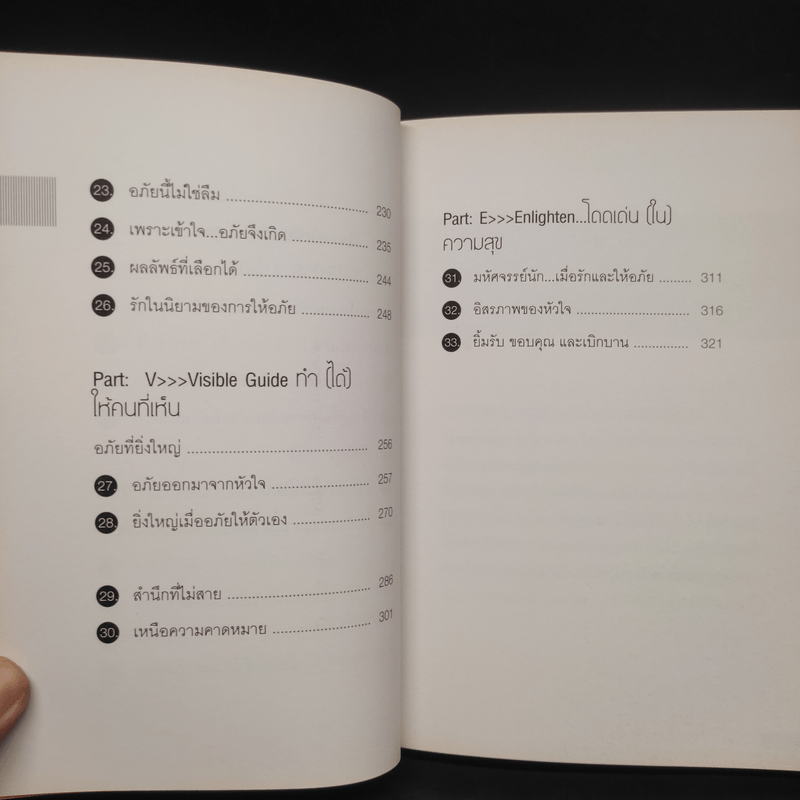 23. อภัยนี้ไม่ใช่ลืม ........................................ 230
24. เพราะเข้าใจ...อภัยจึงเกิด ...................... 235
25. ผลลัพธ์ที่เลือกได้ .................................. 244
26. รักในนิยามของการให้อภัย .................... 248
Part: V>>>Visible Guide ทำ (ได้)
ให้คนที่เห็น
อภัยที่ยิ่งใหญ่ ................................................ 256
27. อภัยออกมาจากหัวใจ .......................... 257
28. ยิ่งใหญ่เมื่ออภัยให้ตัวเอง ..................... 270
29. สำนึกที่ไม่สาย ...................................... 286
30. เหนือความคาดหมาย .......................... 301
Part: E>>>Enlighten...โดดเด่น (ใน)
ความสุข
31. มหัศจรรย์นัก...เมื่อรักและให้อภัย ........ 311
32. อิสรภาพของหัวใจ ............................ 316
33. ยิ้มรับ ขอบคุณ และเบิกบาน .............. 321